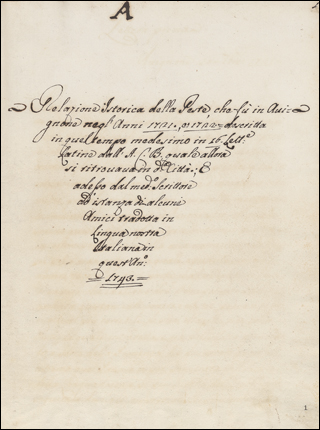 A
Relazione Istorica della Peste che fù in Avi=
gnone negl'Anni 1721. e 1722= descritta
in quel tempo medesimo in 16. Lett:e
Latine dall' A. C. B. quale allora
si ritrovava in d:a Città.; E
adesso dal med:o Scrittore
ad istanza di alcuni
Amici tradotta in
Lingua nostra
Italiana in
quest'An:
=1743.=
1